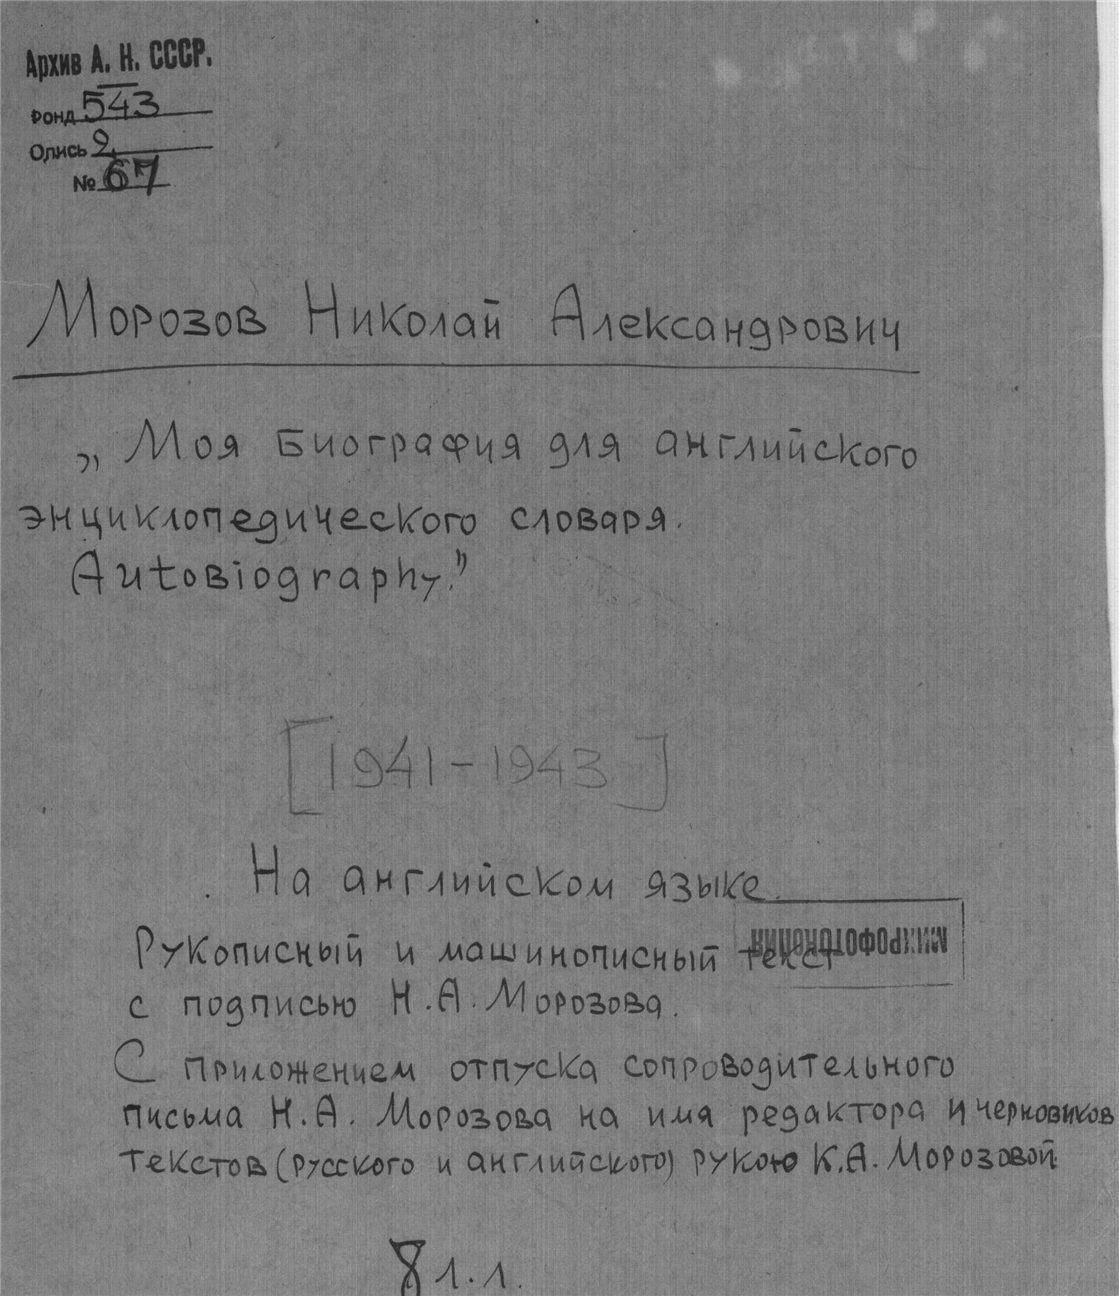 Архив А. Н. СССР.
Фонд 543
Опись 2
№ 67
Морозов Николай Александрович
„Моя биография для английского
энциклопедического словаря.
Autobiography."
[1941-1943]
На английском языке.
Рукописный и машинописный текст
МИКРОФОТОКОПИЯ
с подписью Н.А. Морозова.
С приложением отпуска сопроводительного
письма Н.А. Морозова на имя редактора и черновиков
текстов (русского и английского) рукою К.А. Морозовой
8 л.л.